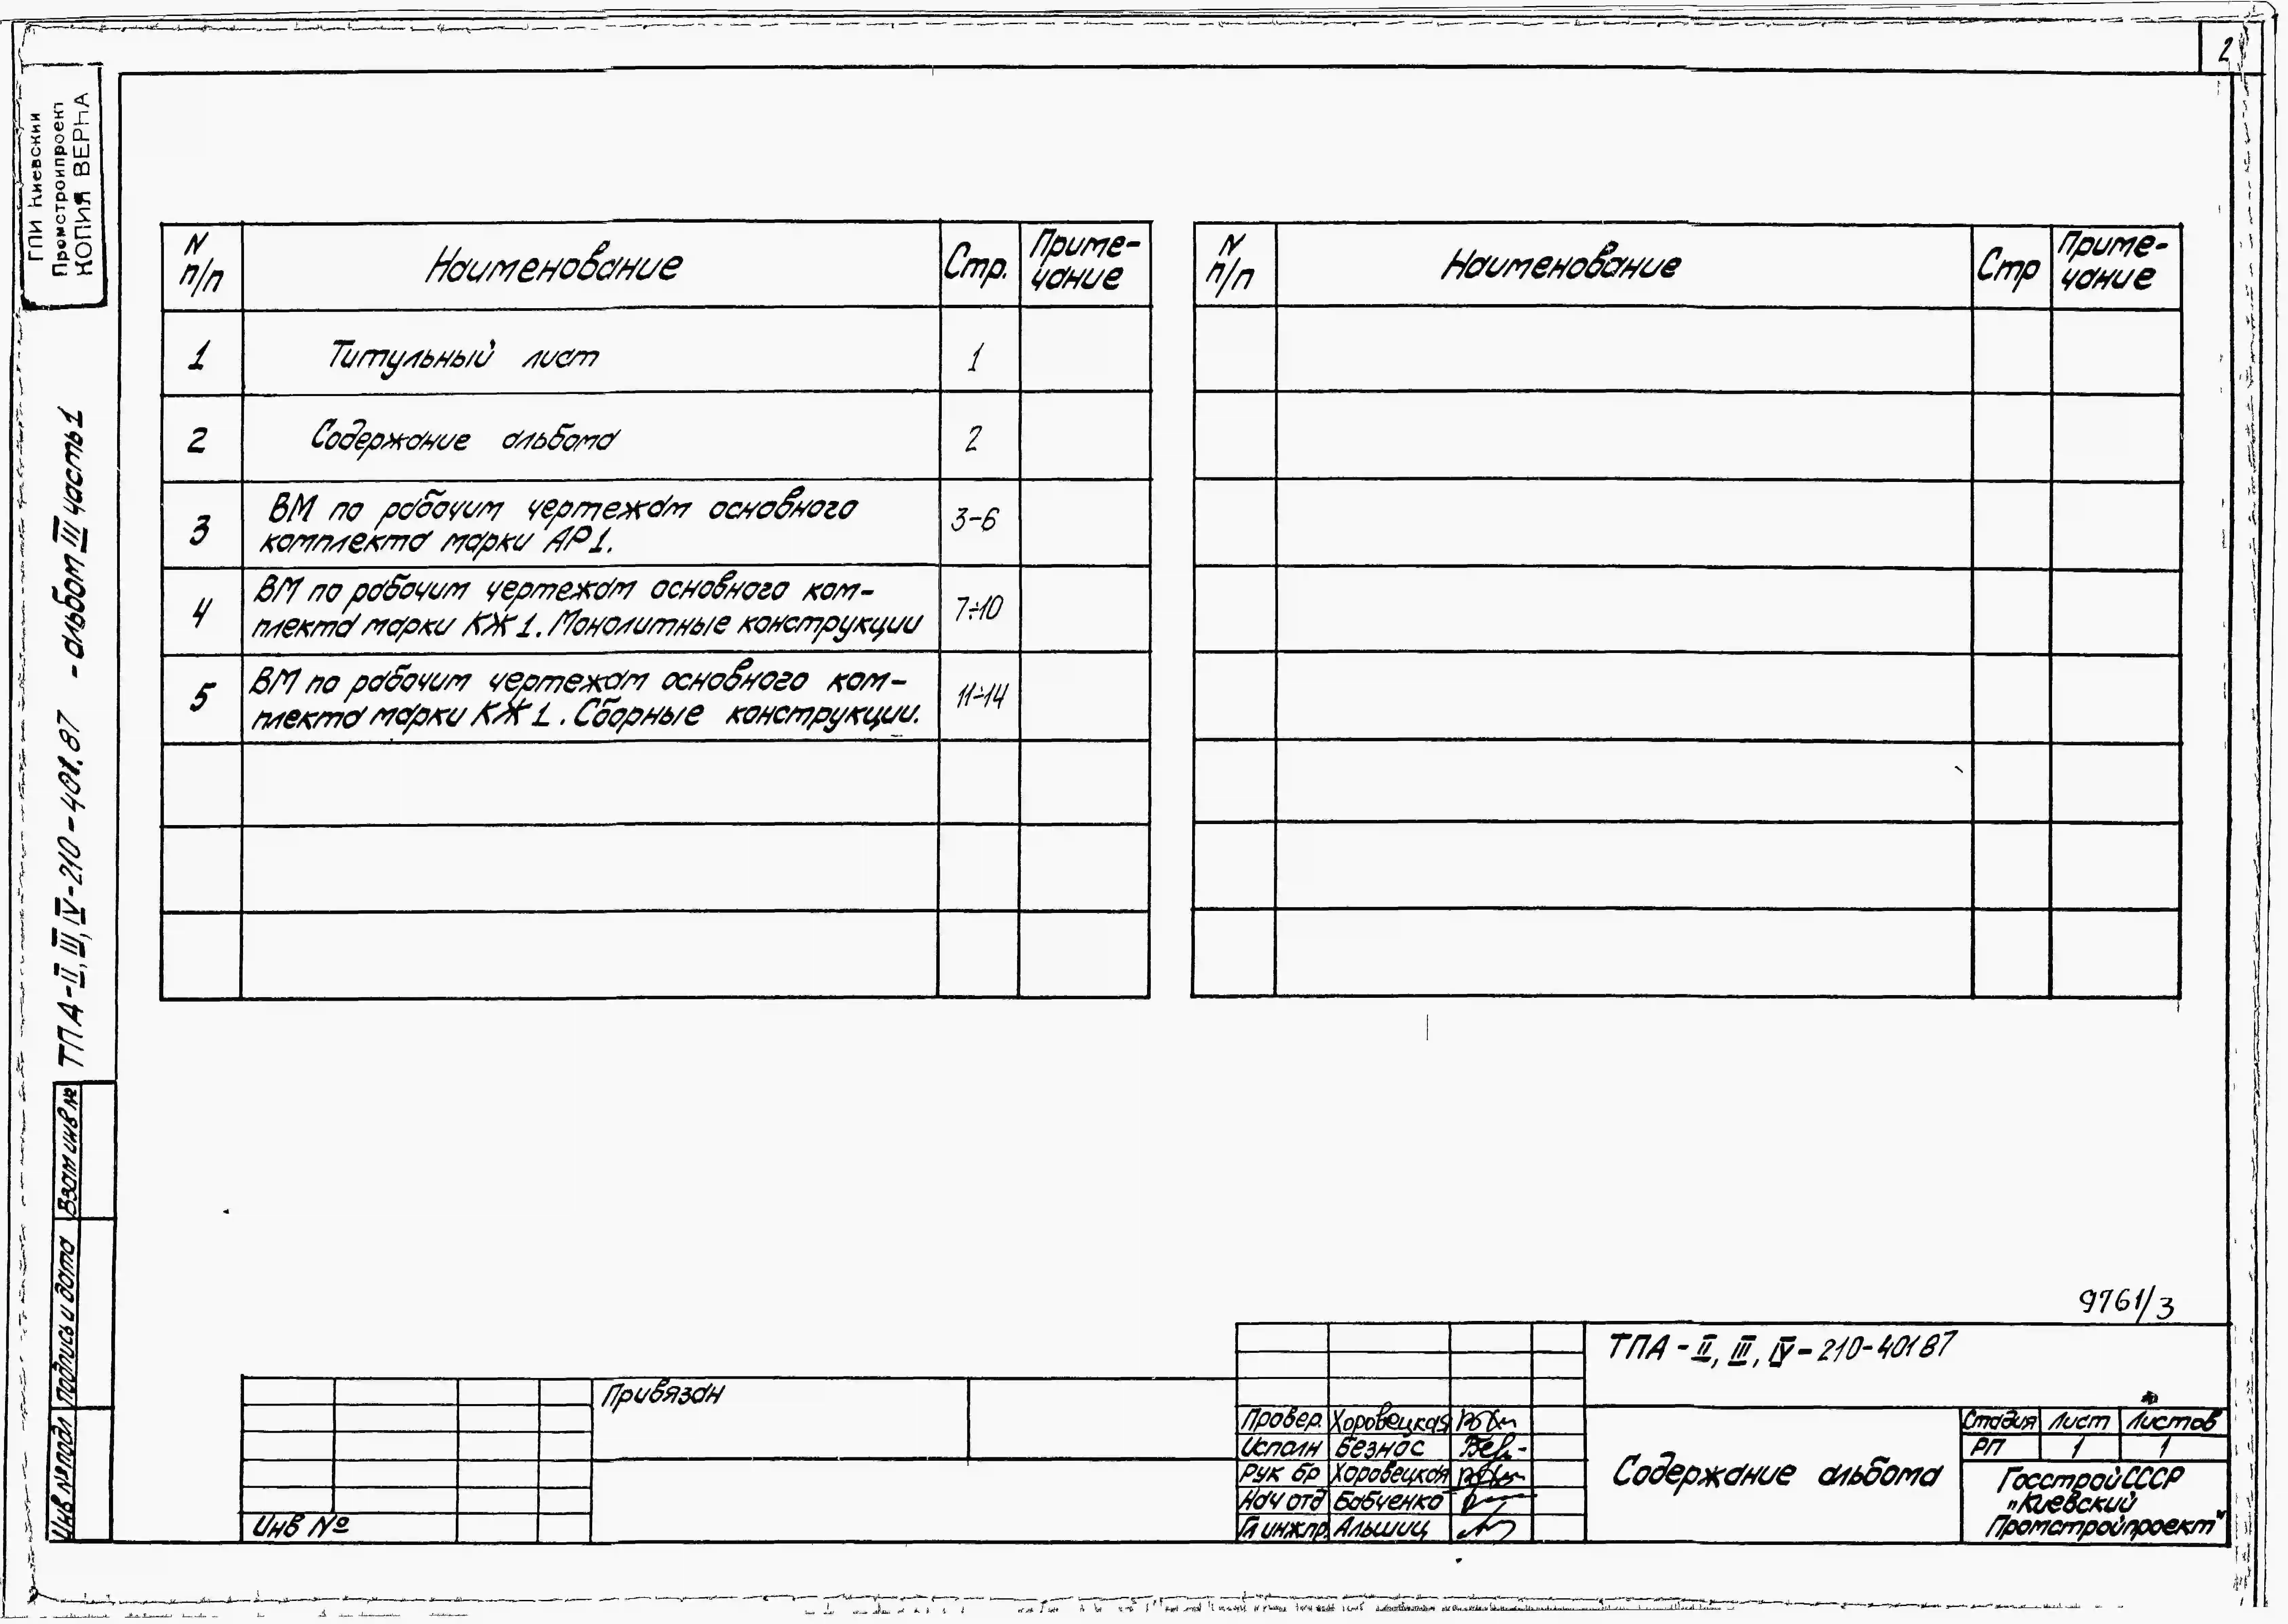 2
ГПИ Киевский
Промстройпроект
КОПИЯ ВЕРНА
ТПА-II, III, IV-210-401.87 - альбом III часть 1
N п/п Наименование Стр. Приме-чание
1 Титульный лист 1
2 Содержание альбома 2
3 ВМ по рабочим чертежам основного 3-6
комплекта марки АР1.
4 ВМ по рабочим чертежам основного ком- 7÷10
плекта марки КЖ1. Монолитные конструкции
5 ВМ по рабочим чертежам основного ком- 11÷14
плекта марки КЖ1. Сборные конструкции.
N п/п Наименование Стр Приме-чание
Взам инв №
Подпись и дата
Инв № подл
9761/3
ТПА-II, III, IV-210-401 87
Привязан
Инв №
Провер. Хоровецкая
Исполн Безнос
Рук бр Хоровецкая
Нач отд Бабченко
Гл инж.пр. Альшиц
Содержание альбома
Стадия Лист Листов
РП 1 1
Госстрой СССР
"Киевский
Промстройпроект"